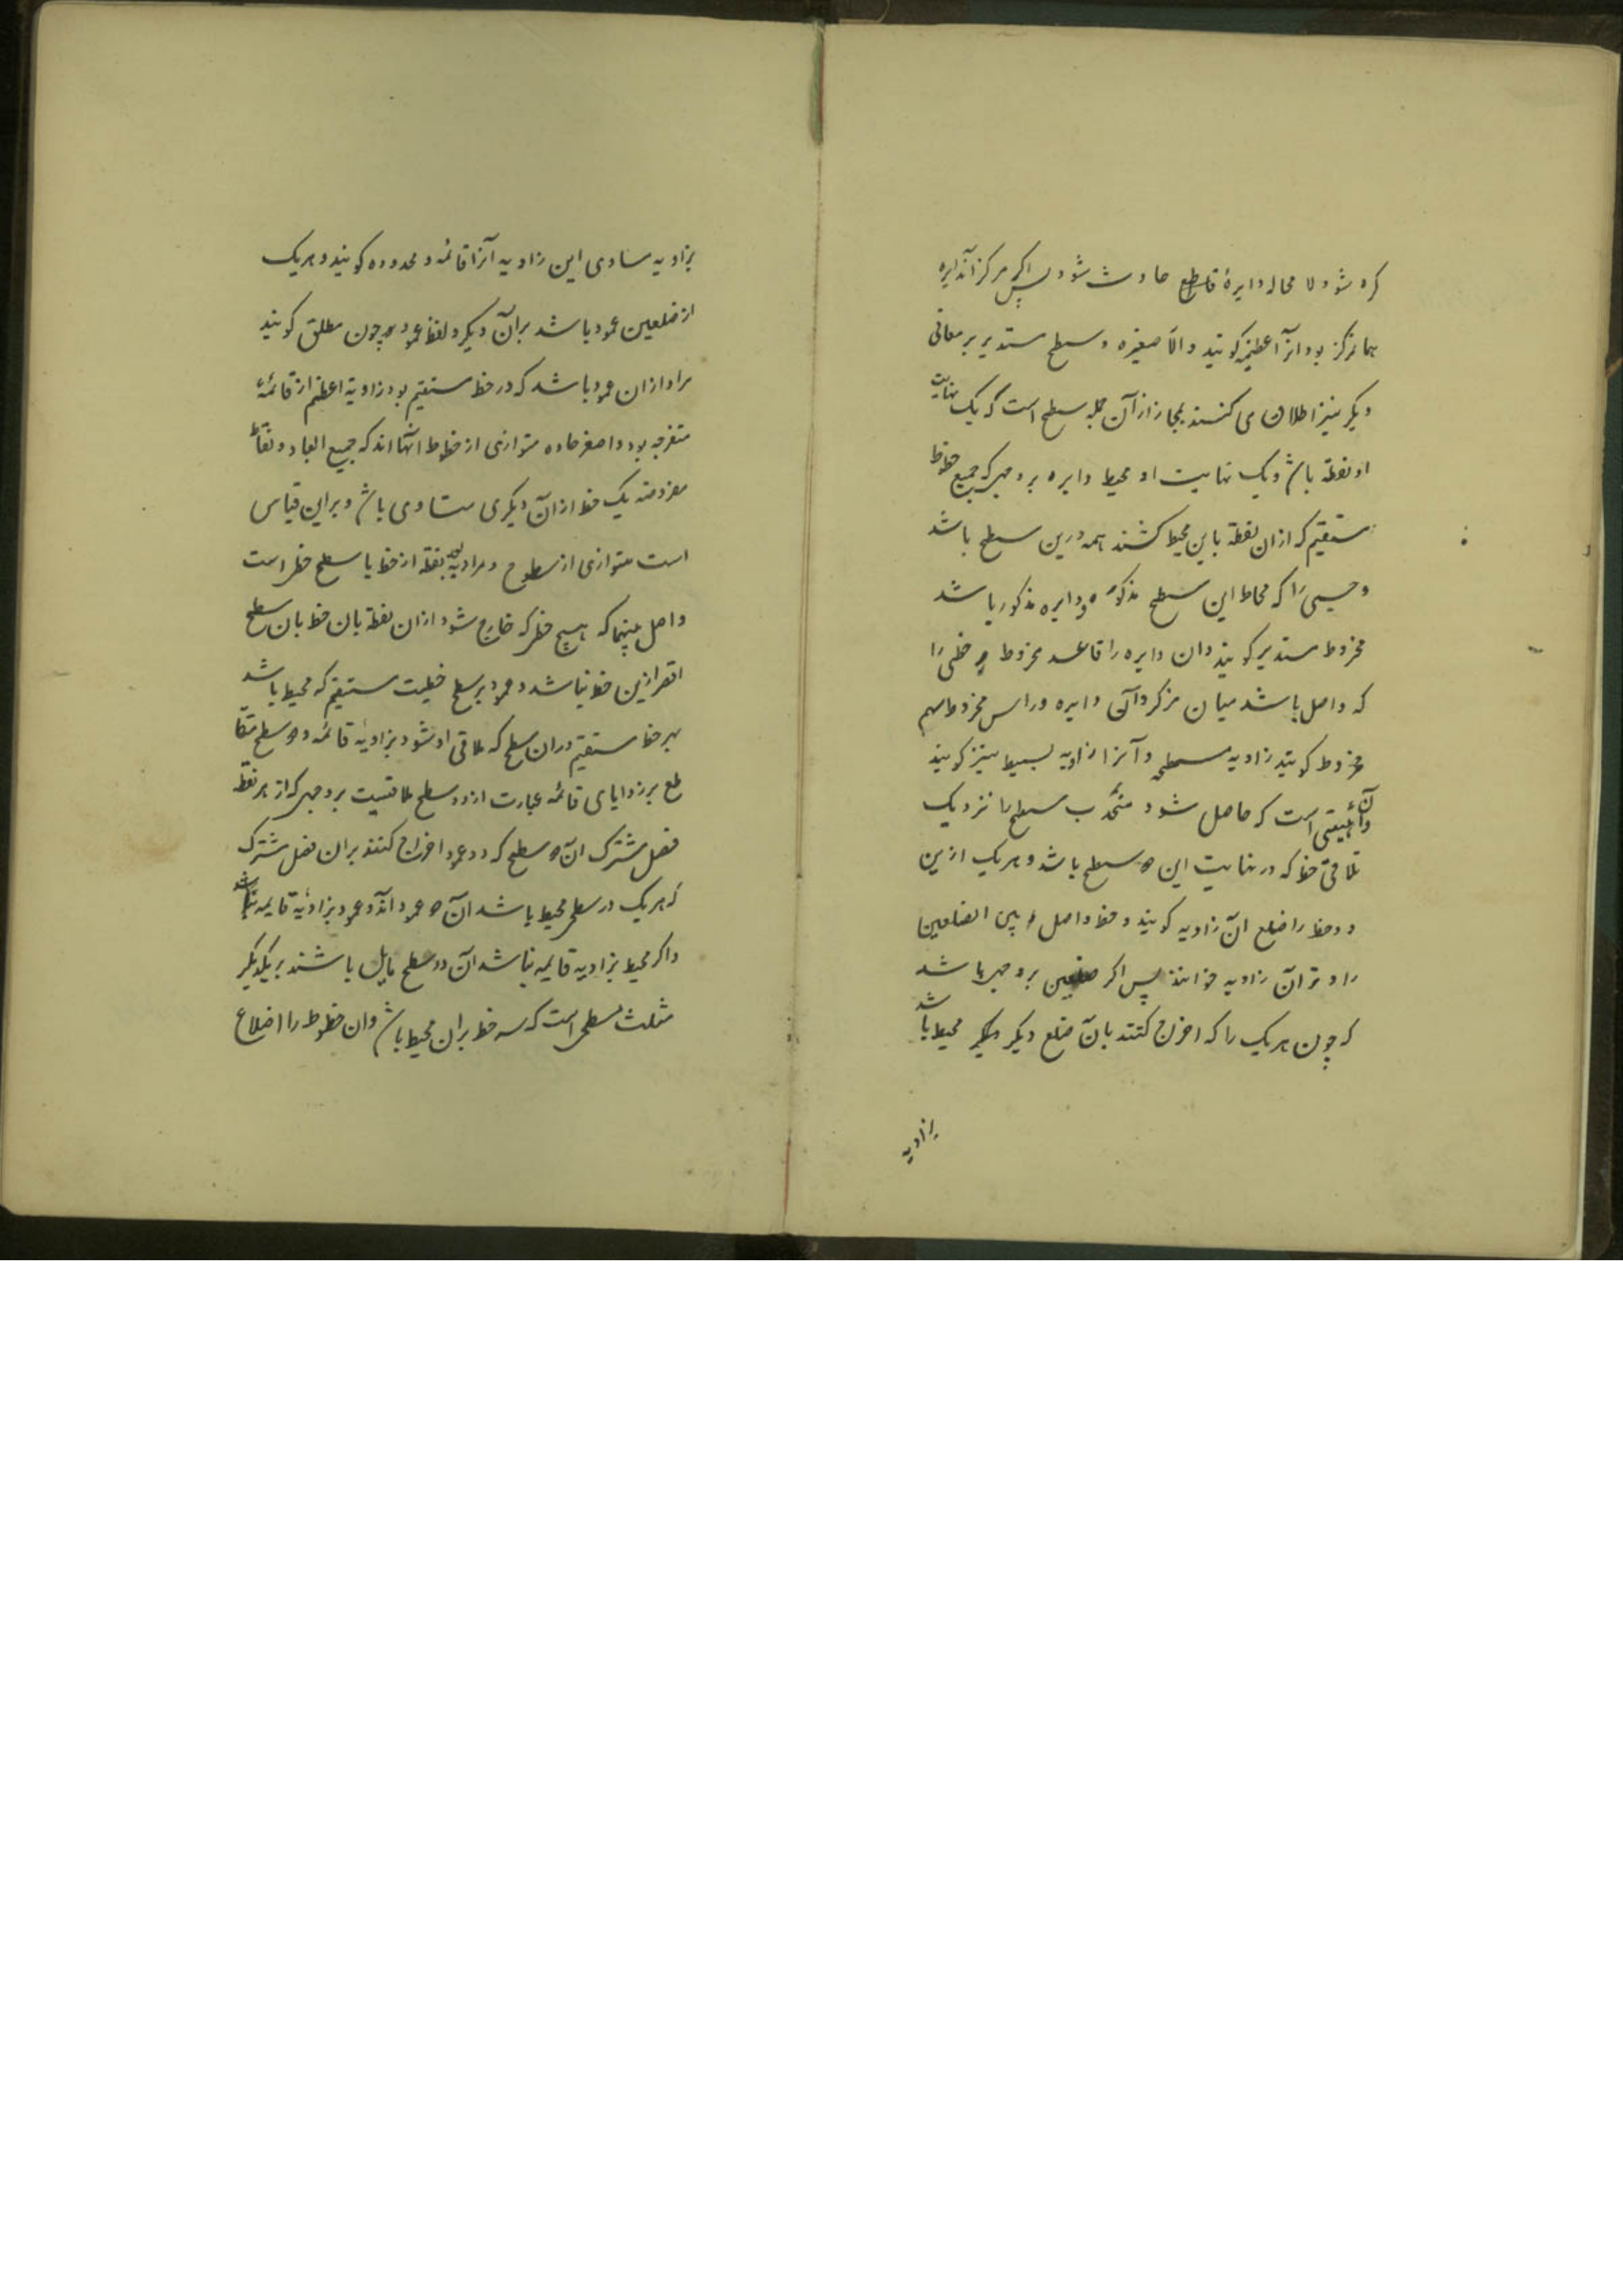 کره شود لا محاله دایرهٔ قاطع حادث شود پس اکر مرکز آندایره
همان مرکز بود انرا عظیمه کویند و الا صغیره و سطح مستدیر بر معانی
دیکر نیز اطلاق می کنند بمجاز از آن جمله سطح است که یک نهایت
او نقطه باشد و یک نهایت او محیط دایره بر وجهی که جمیع خطوط
مستقیم که ازان نقطه باین محیط کشند همه درین سطح باشد
و جسمی را که محاط این سطح مذکور و دایره مذکور باشد
مخروط مستدیر کویند وان دایره را قاعده مخروط و خطی را
که واصل باشد میان مرکز دایره وراس مخروط سهم
مخروط کویند زاویه مسطحه و آنرا زاویه بسیط نیز کویند
وآن هیئتی است که حاصل شود منحدب سطح را نزدیک
تلاقی دو خط که در نهایت این سطح باشد و هریک ازین
دو خط را ضلع آن زاویه کویند و خط واصل بین الضلعین
را وتر آن زاویه خوانند پس اکر ضلعین بر وجهی باشد
که چون هریک را که اخراج کنند با آن ضلع دیکر محیط باشد
بزاویه
بزاویه مساوی این زاویه آنرا قائمه و محدوده کویند و هریک
از ضلعین عمود باشد بران دیکر و لفظ عمود چون مطلق کویند
مراد ازان عمود باشد که در خط مستقیم بود و زاویهٔ اعظم از قائمهٔ
منفرجه بود و اصغر حاده متوازی از خطوط آنها اند که جمیع ابعاد و نقاط
مفروضه یک خط از آن دیکری متساوی باشد و برین قیاس
است متوازی از سطوح و مراد ببعد نقطه از خط یا سطح خطی است
واصل بینهما که هیچ خطی که خارج شود ازان نقطه بان خط یا بان سطح
اقصر ازین خط نباشد و عمود بر سطح خطیست مستقیم که محیط باشد
بهر خط مستقیم دران سطح که ملاقی او شود بزاویهٔ قائمه و دو سطح متقا
طع بر زوایای قائمه عبارت از دو سطح ملاقیست بر وجهی که از هر نقطه
فصل مشترک ان دو سطح که دو عمود اخراج کنند بران فصل مشترک
که هریک در سطحی محیط باشد آن دو عمود بزاویهٔ قایمه باشد
واکر محیط بزاویه قایمه نباشد آن دو سطح مایل باشند بر یکدیکر
مثلث سطحی است که سه خط بران محیط باشد وان خطوط را اضلاع